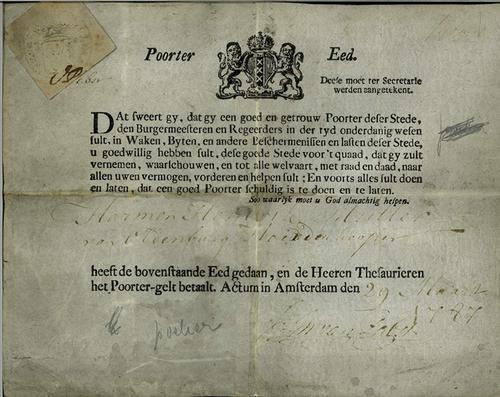 Poorter Eed.
Deese moet ter Secretarie
werden aangetekent.
DAt sweert gy, dat gy een goed en getrouw Poorter deser Stede,
den Burgermeesteren en Regeerders in der tyd onderdanig wesen
sult, in Waken, Byten, en andere Beschermenissen en lasten deser Stede,
u goedwillig hebben sult, dese goede Stede voor't quaad, dat gy zult
vernemen, waarschouwen, en tot alle welvaart, met raed en daad, naar
allen uwen vermogen, vorderen en helpen sult; En voorts alles sult doen
en laten, dat een goed Poorter schuldig is te doen en te laten.
Soo waarlyk moet u God almachtig helpen.
Harmen
van Oldenburg
heeft de bovenstaande Eed gedaan, en de Heeren Thesaurieren
het Poorter-gelt betaalt. Actum in Amsterdam den 29 Maart